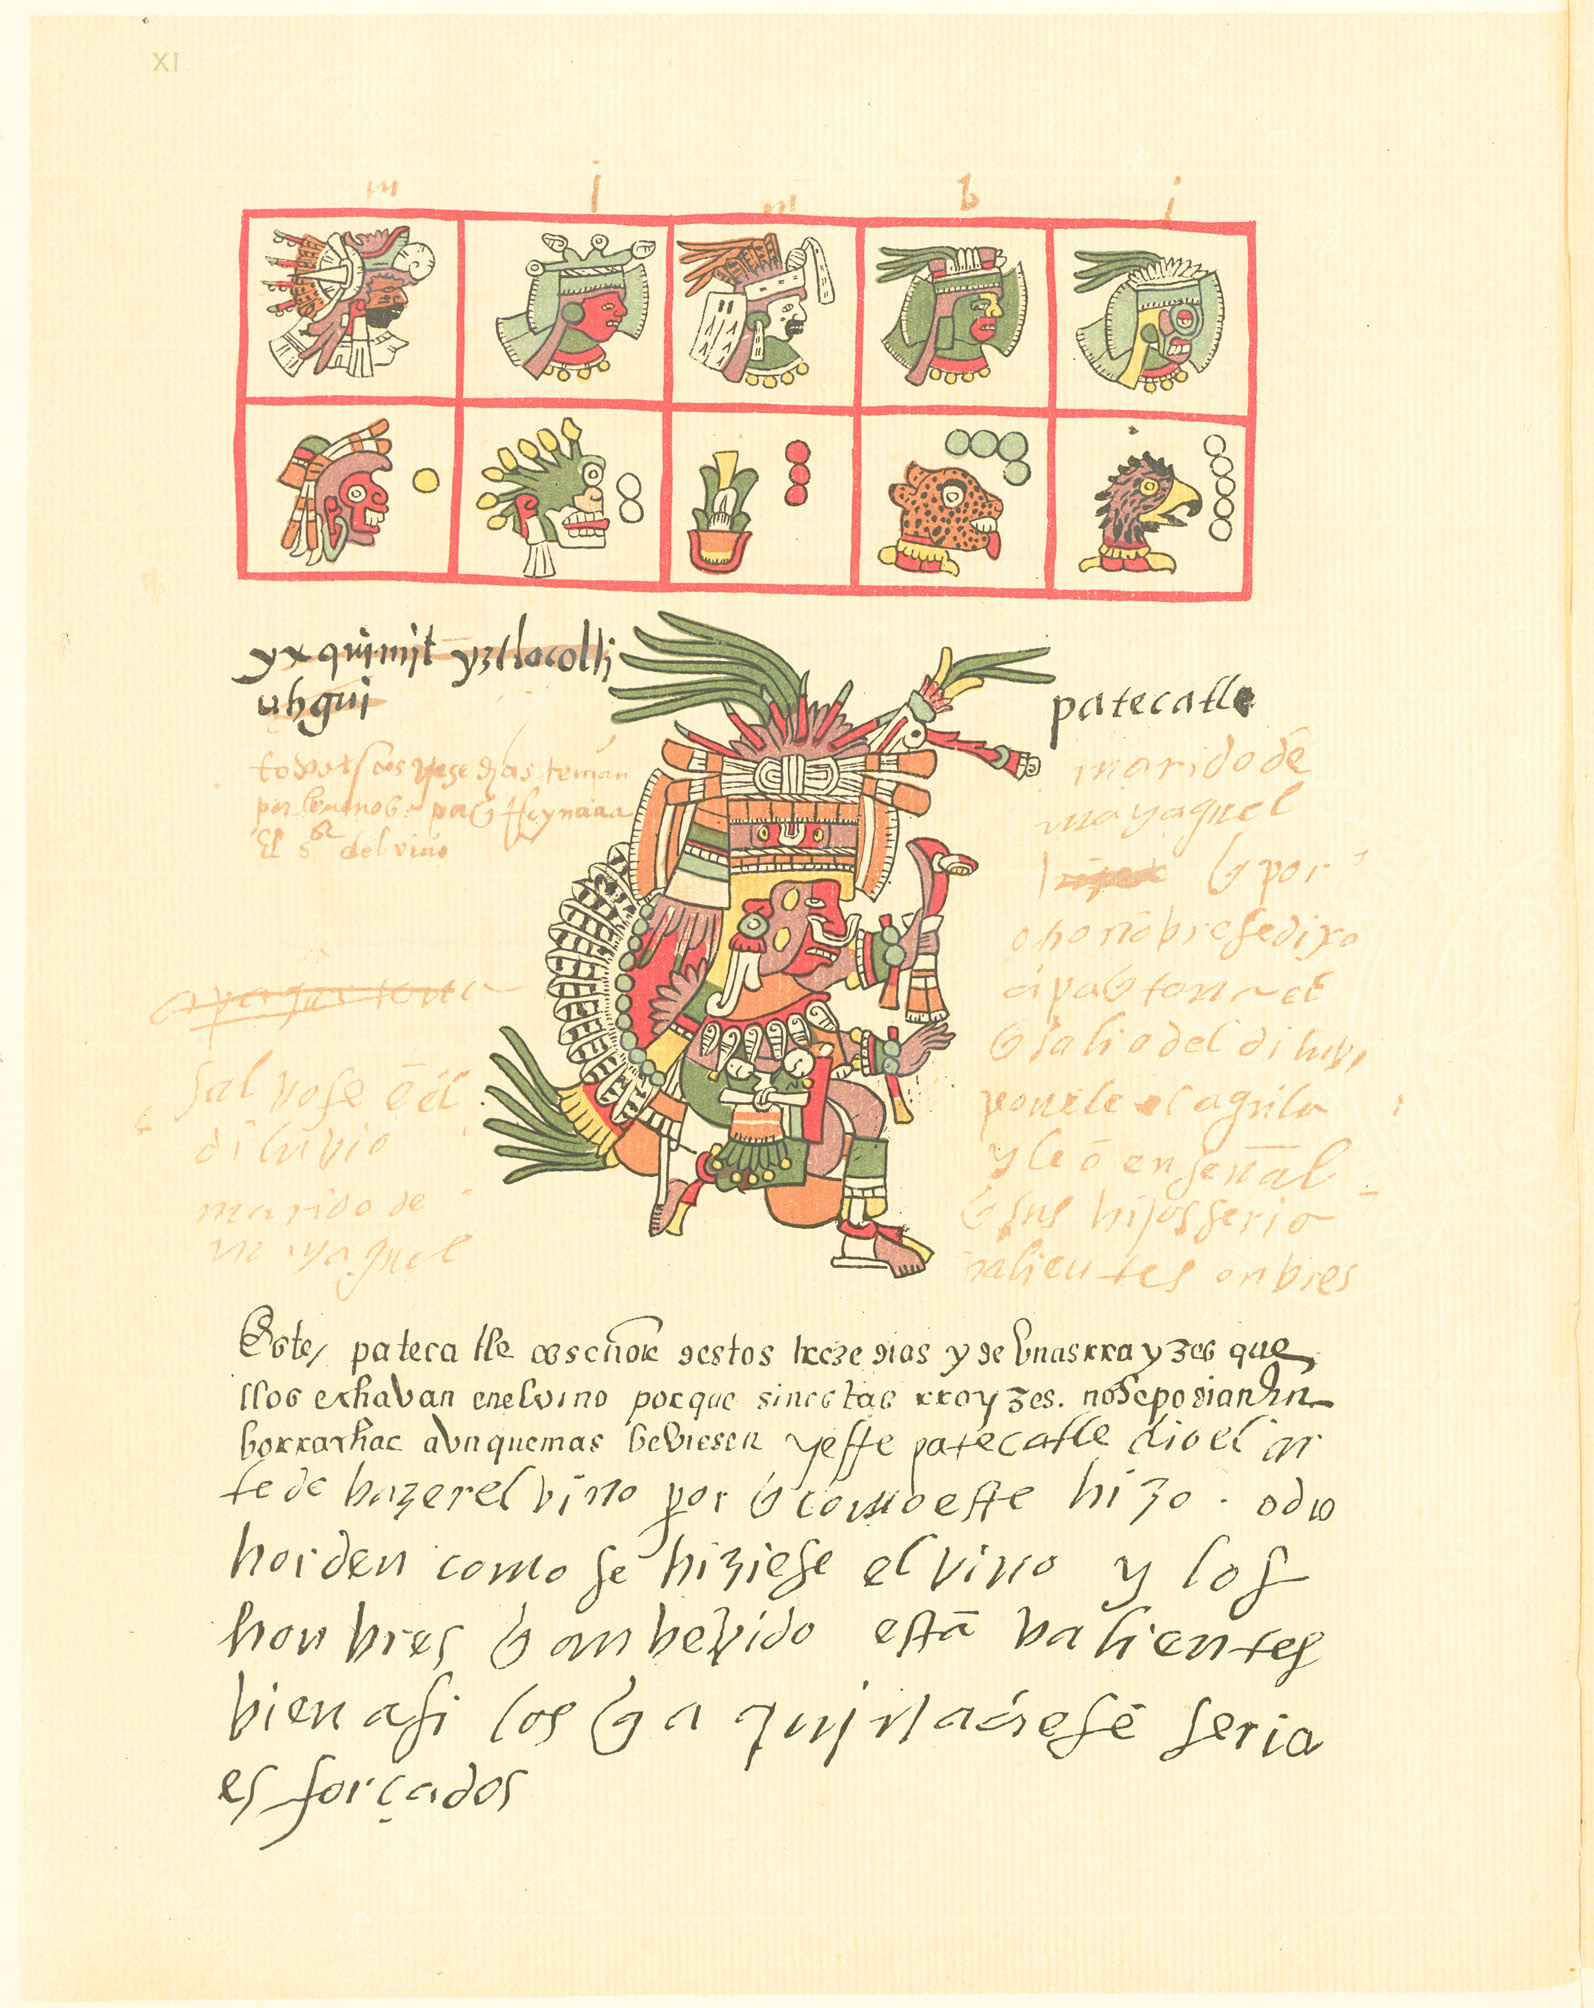 XI
m j m b j
yxquimit yztlacolli
uhqui
patecatle
marido de
mayaguel
por
onbre se dixo
salio del diluvi
ponele el aguila
y leō en señal
sus hijos seriā
valientes onbres
del vino
salvose ē el
diluvio
marido de
mayaguel
Este patecatle señor destos treze dias y de unas rrayzes que
ellos echavan en el vino porque sin estas rrayzes. no se podian
borrachar aunque mas beviesen y esste patecatle dio el ar
te de hazer el vino por q̃ como este hizo. o dio
horden como se hiziese el vino y los
honbres q̃ an bevido estā valientes
bien asi los q̃ a qui naciesē seriā
esforçados